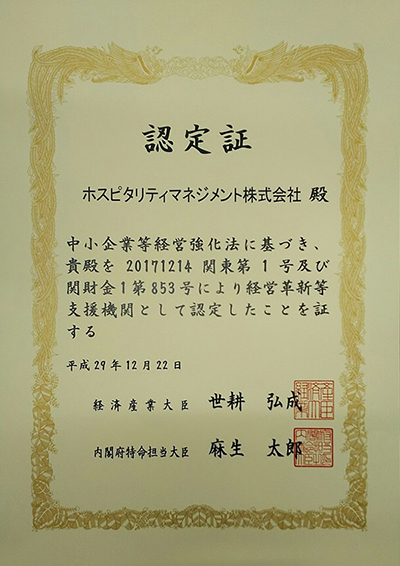 認定証
ホスピタリティマネジメント株式会社 殿
中小企業等経営強化法に基づき、
貴殿を 20171214 関東第 1 号及び
関財金1第853号により経営革新等
支援機関として認定したことを証
する
平成29年12月22日
経済産業大臣 世耕 弘成
内閣府特命担当大臣 麻生 太郎